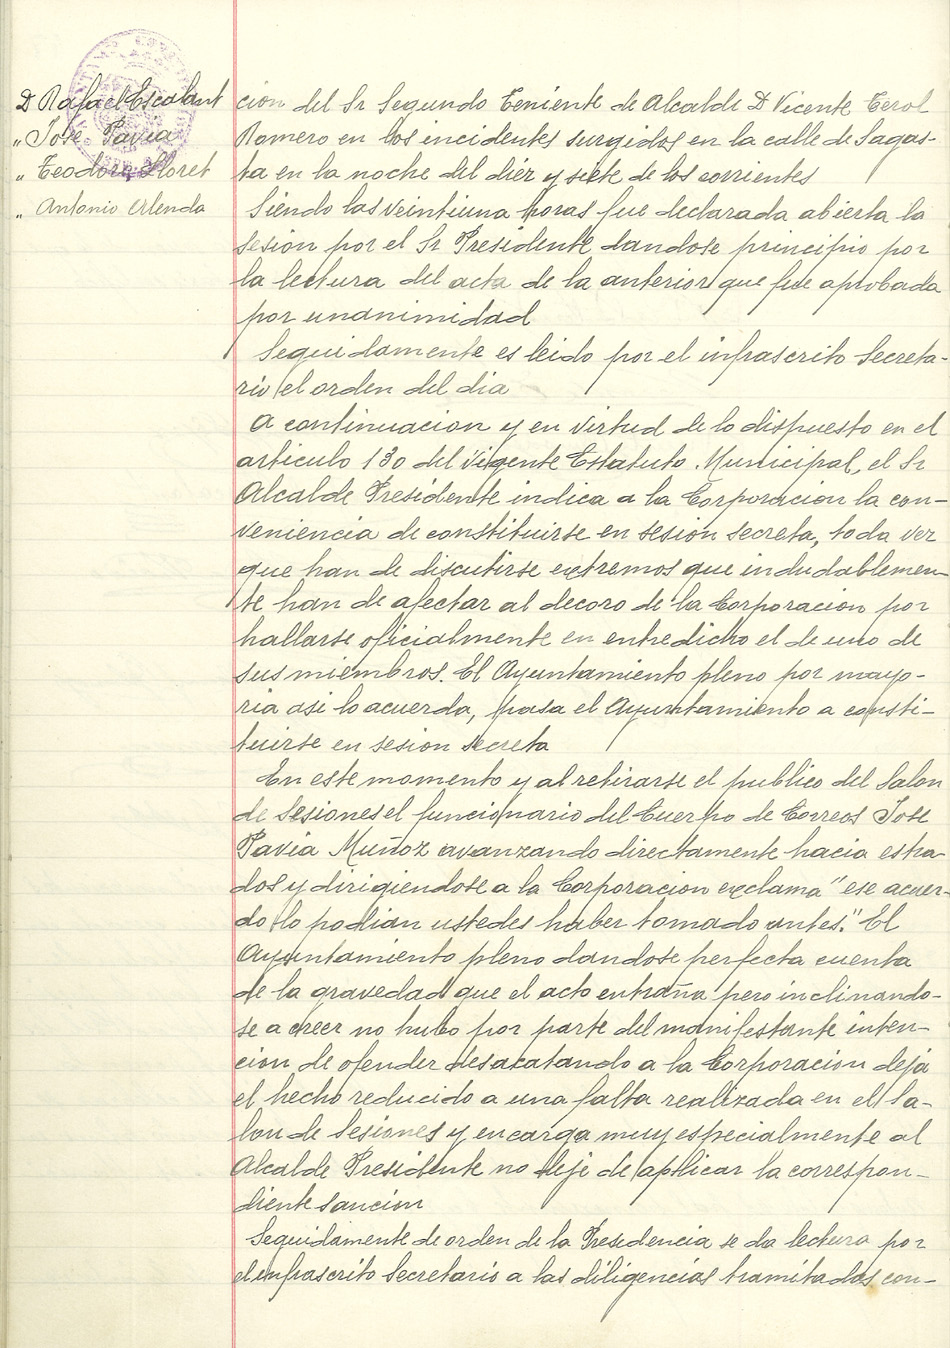 D Rafael Escalant
„ José Pavia
„ Teodoro Lloret
„ Antonio Orlenda
cion del Sr Segundo Teniente de Alcalde D Vicente Terol
Romero en los incidentes surgidos en la calle de Sagas-
ta en la noche del diez y siete de los corrientes
Siendo las veintiuna horas fue declarada abierta la
sesion por el Sr Presidente dandose principio por
la lectura del acta de la anterior que fue aprobada
por unanimidad
Seguidamente es leido por el infrascrito Secreta-
rio el orden del dia
A continuacion y en virtud de lo dispuesto en el
articulo 130 del vigente Estatuto Municipal, el Sr
Alcalde Presidente indica a la Corporacion la con-
veniencia de constituirse en sesion secreta, toda vez
que han de discutirse extremos que indudablemen-
te han de afectar al decoro de la Corporacion por
hallarse oficialmente en entredicho el de uno de
sus miembros. El Ayuntamiento pleno por mayo-
ria asi lo acuerda, pasa el Ayuntamiento a consti-
tuirse en sesion secreta
En este momento y al retirarse el publico del Salon
de Sesiones el funcionario del Cuerpo de Correos Jose
Pavia Muñoz avanzando directamente hacia estra-
dos y dirigiendose a la Corporacion exclama "ese acuer-
do lo podian ustedes haber tomado antes." El
Ayuntamiento pleno dandose perfecta cuenta
de la gravedad que el acto entraña pero inclinando-
se a creer no hubo por parte del manifestante inten-
cion de ofender desacatando a la Corporacion deja
el hecho reducido a una falta realizada en el Sa-
lon de Sesiones y encarga muy especialmente al
Alcalde Presidente no deje de aplicar la correspon-
diente sancion
Seguidamente de orden de la Presidencia se da lectura por
el infrascrito Secretario a las diligencias tramitadas con-